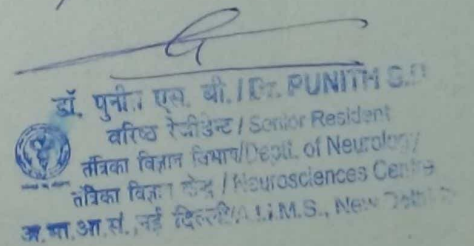 डॉ. पुनीत एस. बी. / Dr. PUNITH S.B
वरिष्ठ रेजीडेन्ट / Senior Resident
तंत्रिका विज्ञान विभाग/Deptt. of Neurology
तंत्रिका विज्ञान केन्द्र / Neurosciences Centre
अ.भा.आ.सं., नई दिल्ली/A.I.I.M.S., New Delhi